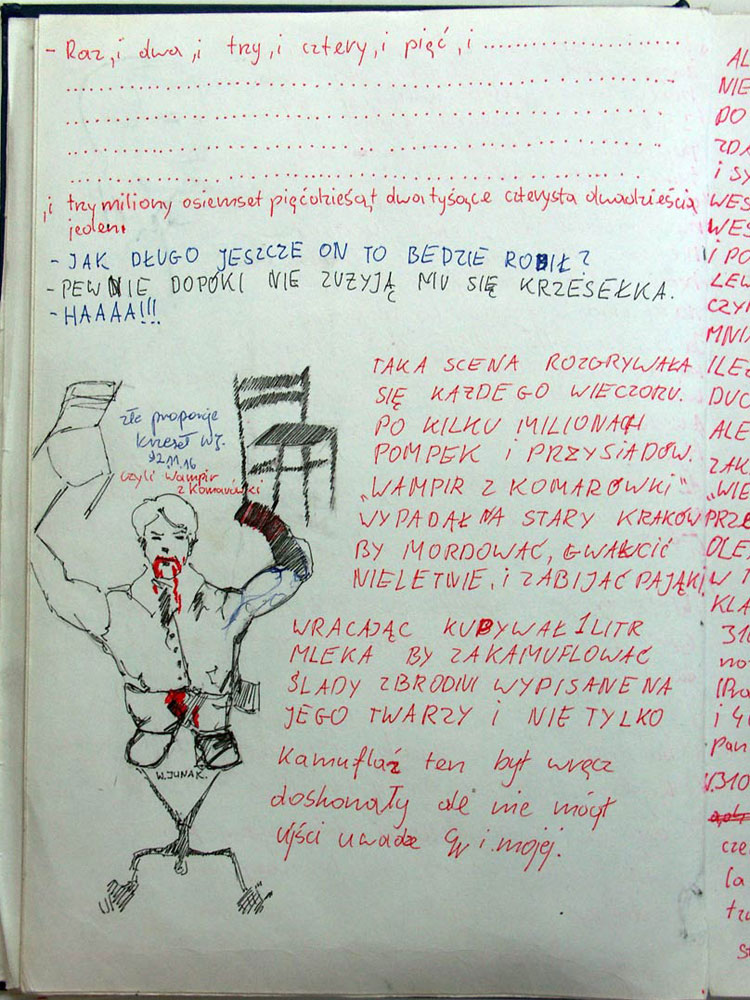 - Raz, i dwa, i trzy, i cztery, i pięć, i ..............................
..............................................................................
..............................................................................
..............................................................................
..............................................................................
, i trzy miliony osiemset pięćdziesiąt dwa tysiące czterysta dwadzieścia
jeden.
- JAK DŁUGO JESZCZE ON TO BEDZIE ROBIŁ?
- PEWNIE DOPÓKI NIE ZUŻYJĄ MU SIĘ KRZESEŁKA.
- HAAAA!!!
TAKA SCENA ROZGRYWAŁA
SIĘ KAŻDEGO WIECZORU.
PO KILKU MILIONACH
POMPEK I PRZYSIADÓW.
„WAMPIR Z KOMARÓWKI"
WYPADAŁ NA STARY KRAKÓW
BY MORDOWAĆ, GWAŁCIĆ
NIELETNIE, I ZABIJAĆ PAJĄKI.
złe proporcje
krzeseł WJ.
92.11.16
czyli Wampir
z Komarówki
WRACAJĄC KUPYWAŁ 1 LITR
MLEKA BY ZAKAMUFLOWAĆ
ŚLADY ZBRODNI WYPISANE NA
JEGO TWARZY I NIE TYLKO
Kamuflaż ten był wręcz
doskonały ale nie mógł
ujść uwadze i mojej.
W. JUNAK.
AL
NIE
DO
ZDA
i SY
WES
WES
I PO
LEW
CZYN
MNIA
ILEZ
DUC
ALE
ZAK
„WIE
PRZE
OLE
W T
KLA
310
i 4
Pan
310
cze
la